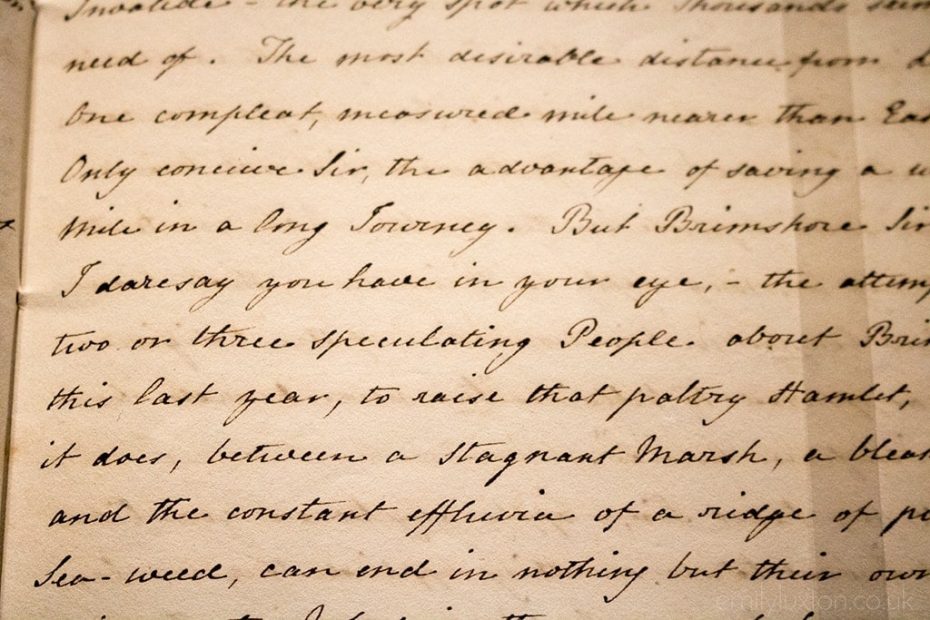 Invalide - the very spot which Thousands seem
need of. The most desirable distance from
One compleat, measured mile nearer than Eas
Only conceive Sir, the advantage of saving a w
Mile in a long Journey. But Brimshore Sir
I daresay you have in your eye, - the attemp
two or three speculating People about Brin
this last year, to raise that paltry Hamlet,
it does, between a Stagnant Marsh, a bleak
and the constant effluvia of a ridge of pu
Sea-weed, can end in nothing but their own
emilyluxton.co.uk